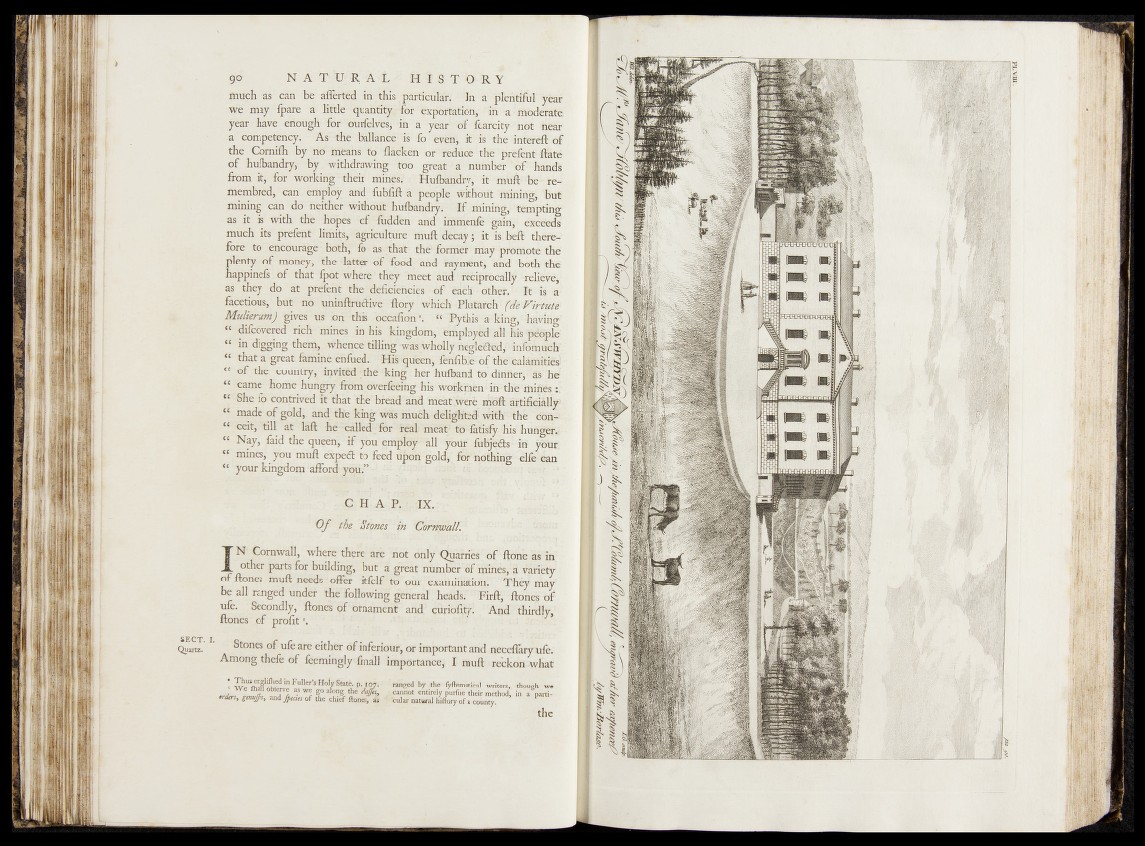 90 NATURAL HISTORY
much as can be aſſerted in this particular. In a plentiful year
we may ſpare a little quantity for exportation, in a moderate
year have enough for ourſelves, in a year of ſcarcity not near
a competency. As the ballance is ſo even, it is the intereſt of
the Corniſh by no means to ſlacken or reduce the preſent ſtate
of huſbandry, by withdrawing too great a number of hands
from it, for working their mines. Huſbandry, it muſt be re-
membred, can employ and ſubſiſt a people without mining, but
mining can do neither without huſbandry. If mining, tempting
as it is with the hopes of ſudden and immenſe gain, exceeds
much its preſent limits, agriculture muſt decay; it is beſt there-
fore to encourage both, ſo as that the former may promote the
plenty of money, the latter of food and rayment, and both the
happineſs of that ſpot where they meet and reciprocally relieve,
as they do at preſent the deficiencies of each other. It is a
facetious, but no uninſtructive ſtory which Plutarch (de Virtute
Mulierum) gives us on this occaſion ˢ. “ Pythis a king, having
“ diſcovered rich mines in his kingdom, employed all his people
“ in digging them, whence tilling was wholly neglected, inſomuch
“ that a great famine enſued. His queen, ſenſible of the calamities
“ of the country, invited the king her huſband to dinner, as he
“ came home hungry from overſeeing his workmen in the mines :
“ She ſo contrived it that the bread and meat were moſt artificially
“ made of gold, and the king was much delighted with the con-
“ ceit, till at laſt he called for real meat to ſatisfy his hunger.
“ Nay, ſaid the queen, if you employ all your ſubjects in your
“ mines, you muſt expect to feed upon gold, for nothing elſe can
“ your kingdom afford you.”
CHAP. IX.
Of the Stones in Cornwall.
IN Cornwall, where there are not only Quarries of ſtone as in
other parts for building, but a great number of mines, a variety
of ſtones muſt needs offer itſelf to our examination. They may
be all ranged under the following general heads. Firſt, ſtones of
uſe. Secondly, ſtones of ornament and curioſity. And thirdly,
ſtones of profit ᵗ.
SECT. I.
Quartz.
Stones of uſe are either of inferiour, or important and neceſſary uſe.
Among theſe of ſeemingly ſmall importance, I muſt reckon what
ˢ Thus engliſhed in Fuller's Holy State. p. 107.
ᵗ We ſhall obſerve as we go along the claſſes,
orders, genuſſes, and ſpecies of the chief ſtones, as
ranged by the ſyſtematical writers, though we
cannot entirely purſue their method, in a parti-
cular natural hiſtory of a county.
the
Pl. VIII
To Mrs. Jane Hoblyn this South View of NANSWHYDEN House in the parish of St. Columb Cornwall, engrav'd at her expence
is most gratefully inscribed by Wm. Borlase.